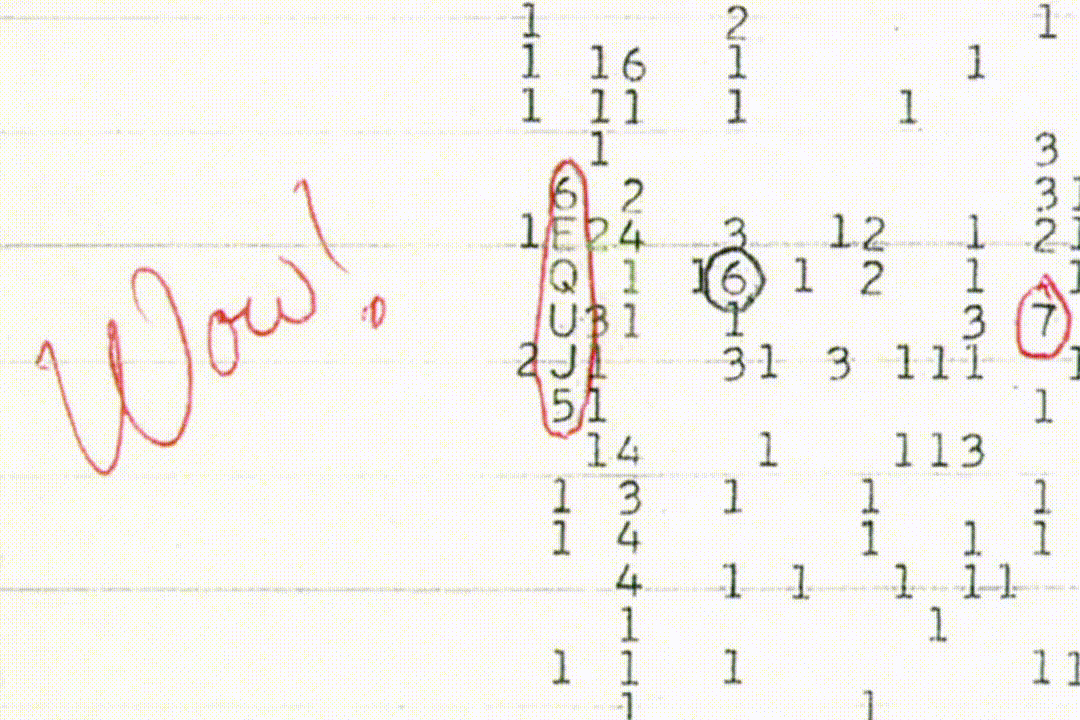 1 2 1
1 16 1 1
1 11 1 1
1 3
6 2 31
1E24 3 12 1 21
Q 1 16 1 2 1 1
U31 1 3 7
2J1 31 3 111 1
51 1
Wow!
14 1 113
1 3 1 1 1
1 4 1 1 1
4 1 1 1 11
1 1
1 1 1 11
1 1